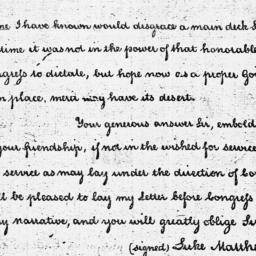 me I have known would disgrace a main deck
time it was not in the power of that honorable
ngress to dictate, but hope now as a proper
en place, merit may have its desert.
Your generous answer Sir, embold
your friendship, if not in the wished for service
service as may lay under the direction of
ll be pleased to lay my Letter before Congress
y narrative, and you will greatly oblige
(signed) Luke Matth